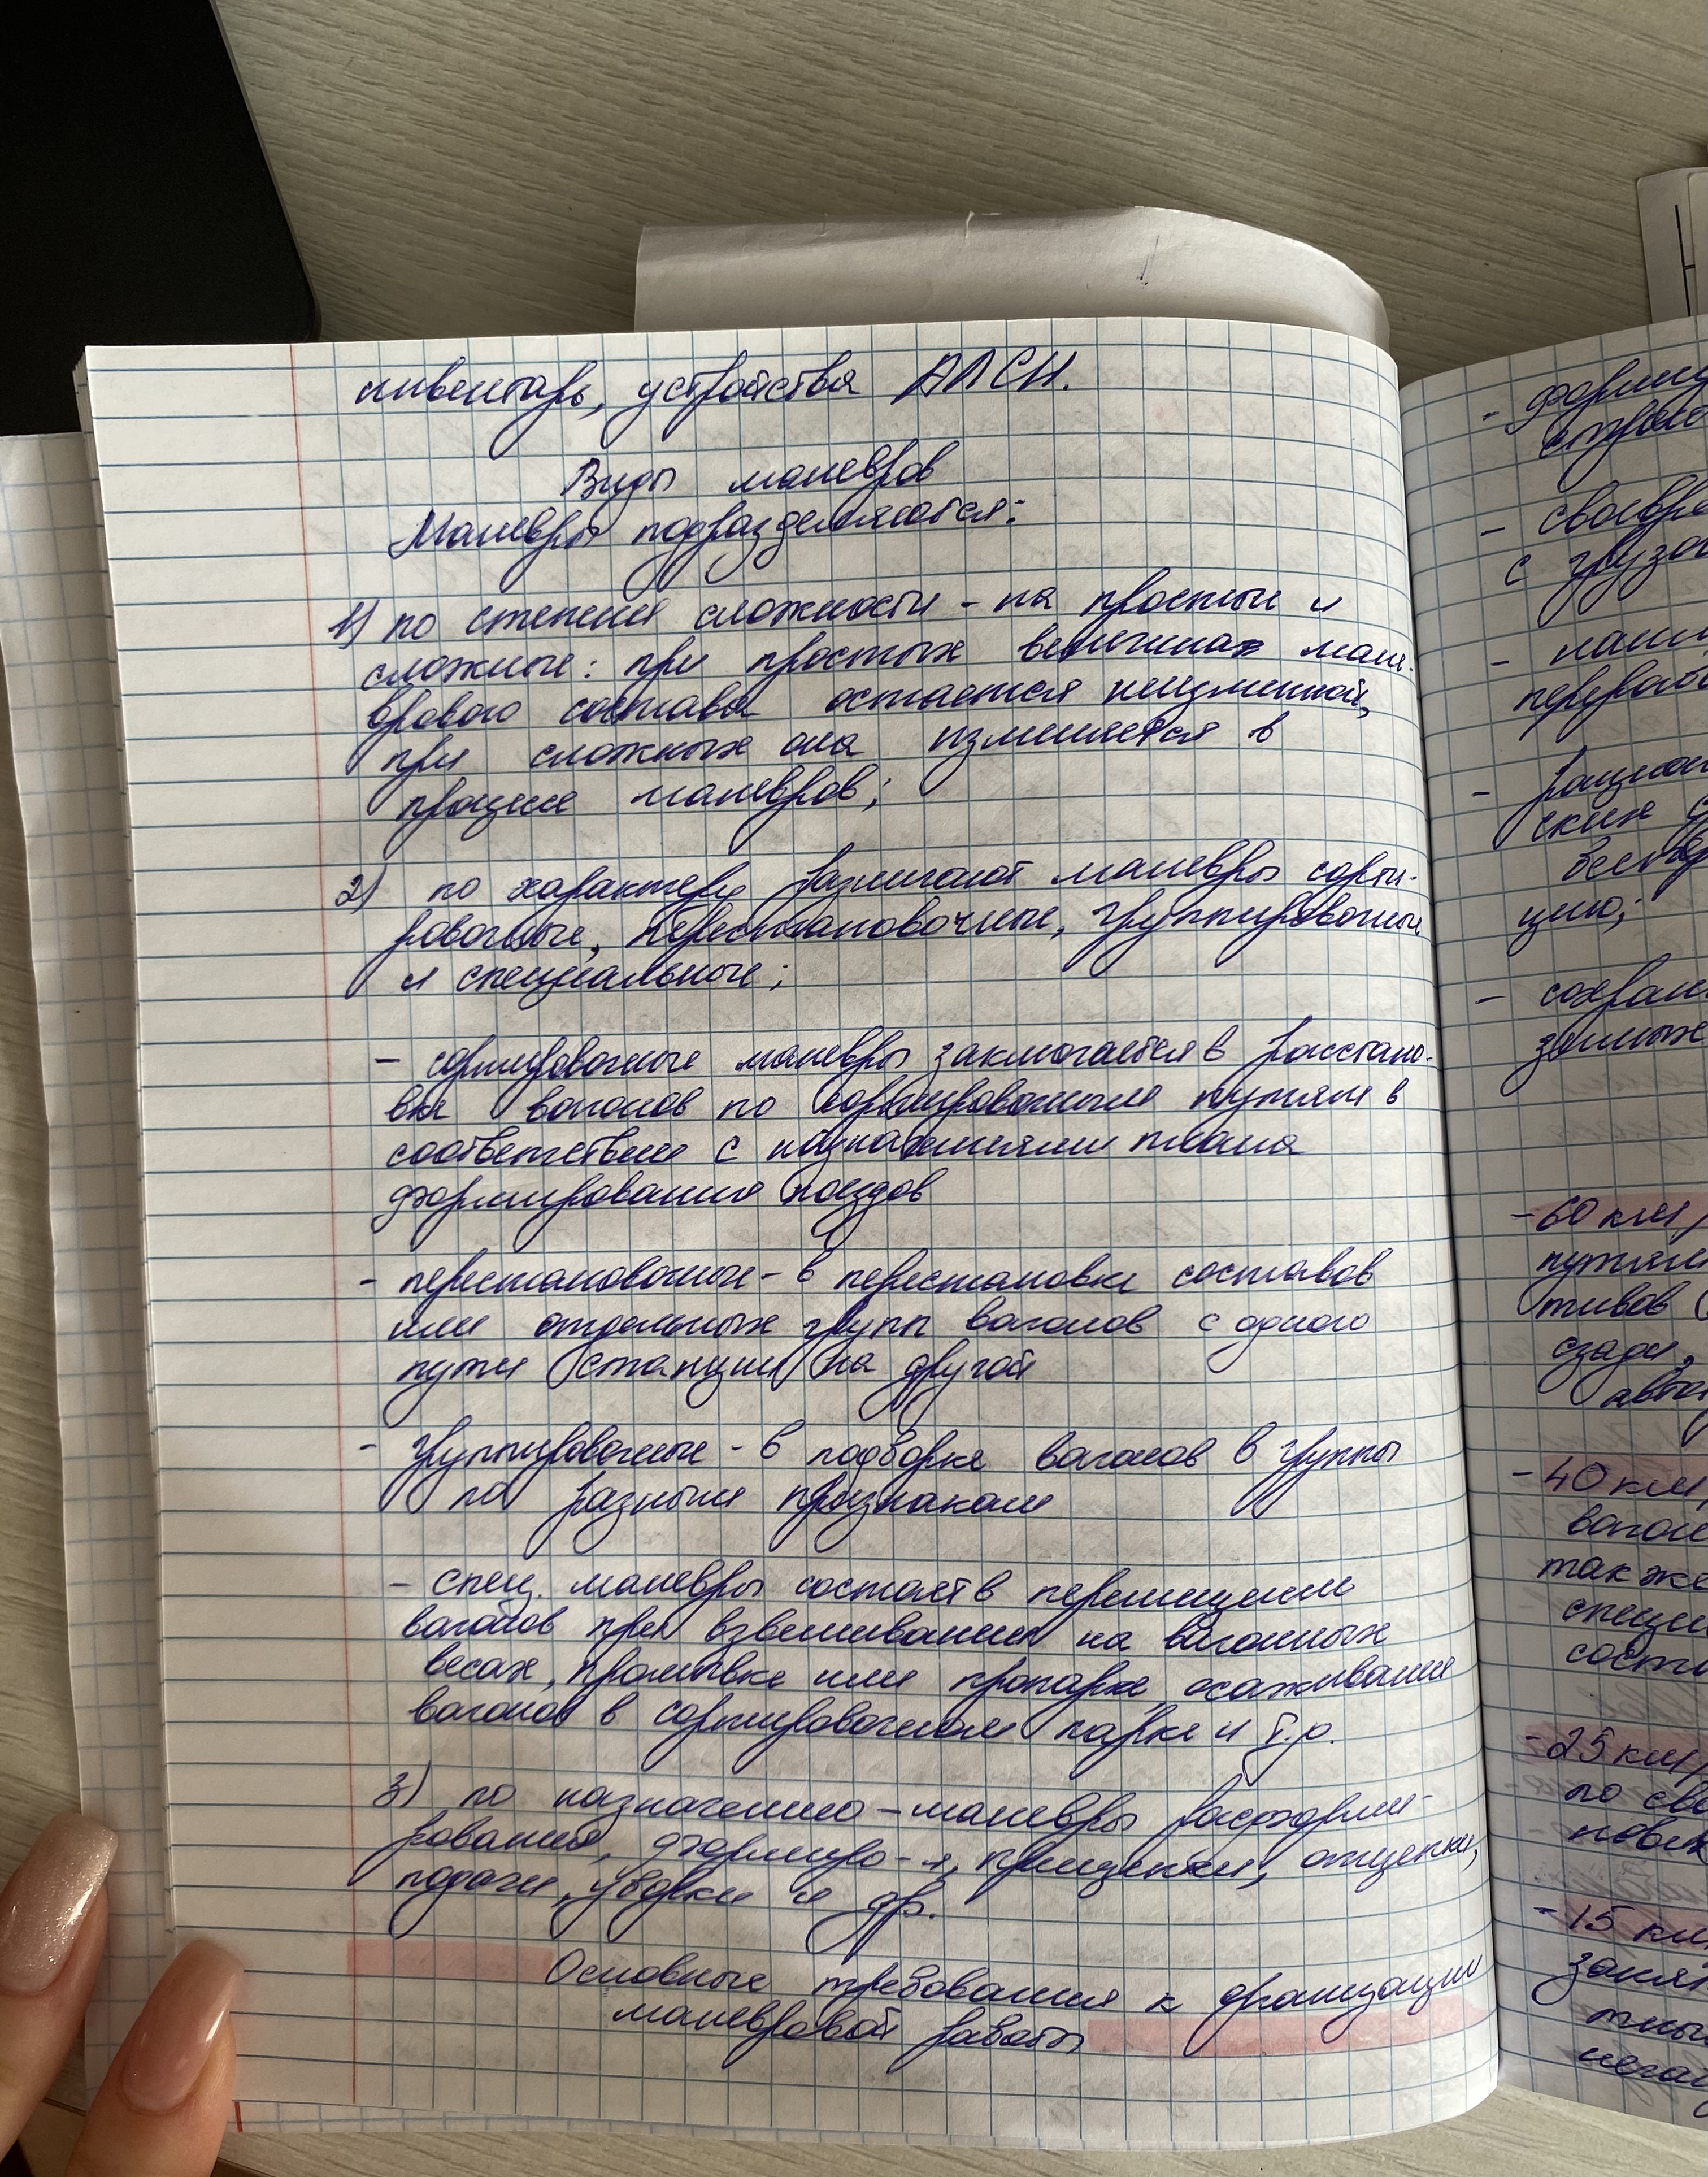 инвентарь, устройства АЛСН.
Виды маневров
Маневры подразделяются:
1) по степени сложности - на простые и
сложные: при простых величина манев-
рового состава остается неизменной,
при сложных она изменяется в
процессе маневров;
2) по характеру различают маневры сорти-
ровочные, перестановочные, группировочные
и специальные;
- сортировочные маневры заключается в расстано-
вки вагонов по сортировочным путям в
соответствии с назначениями плана
формирования поездов
- перестановочные - в перестановке составов
или отдельных групп вагонов с одного
пути станции на другой
- группировочные - в подборке вагонов в группы
по разным признакам
- спец. маневры состоят в перемещении
вагонов при взвешивании на вагонных
весах, промывке или пропарке, осаживание
вагонов в сортировочном парке и т.д.
3) по назначению - маневры расформи-
рования, формиро-я, прицепки, отцепки,
подачи, уборки и др.
Основные требования к организации
маневровой работы
-
- своевре
с грузо
-
перераб
- рацион
ских
цию;
- сохран
-60 км/
путям
тивов
сзади,
авто
-40 км/
вагон
также
специ
сост
-25 км/
по св
-15 км
занят